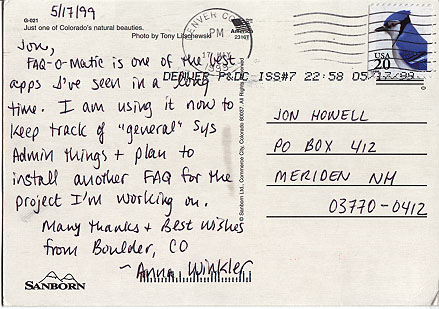 5/17/99
G-021
Just one of Colorado's natural beauties.
Photo by Tony Litschewski
Jon,
FAQ-O-Matic is one of the best
apps I've seen in a long
time. I am using it now to
keep track of "general" Sys
Admin things + plan to
install another FAQ for the
project I'm working on.
Many thanks + Best wishes
from Boulder, CO
~ Anna Winkler
SANBORN
© Sanborn Ltd., Commerce City, Colorado 80037. All Rights Reserved
DENVER CO
PM
17 MAY
1999
America
USA
20
DENVER P&DC ISS#7 22:58 05/17/99
JON HOWELL
PO BOX 412
MERIDEN NH
03770-0412